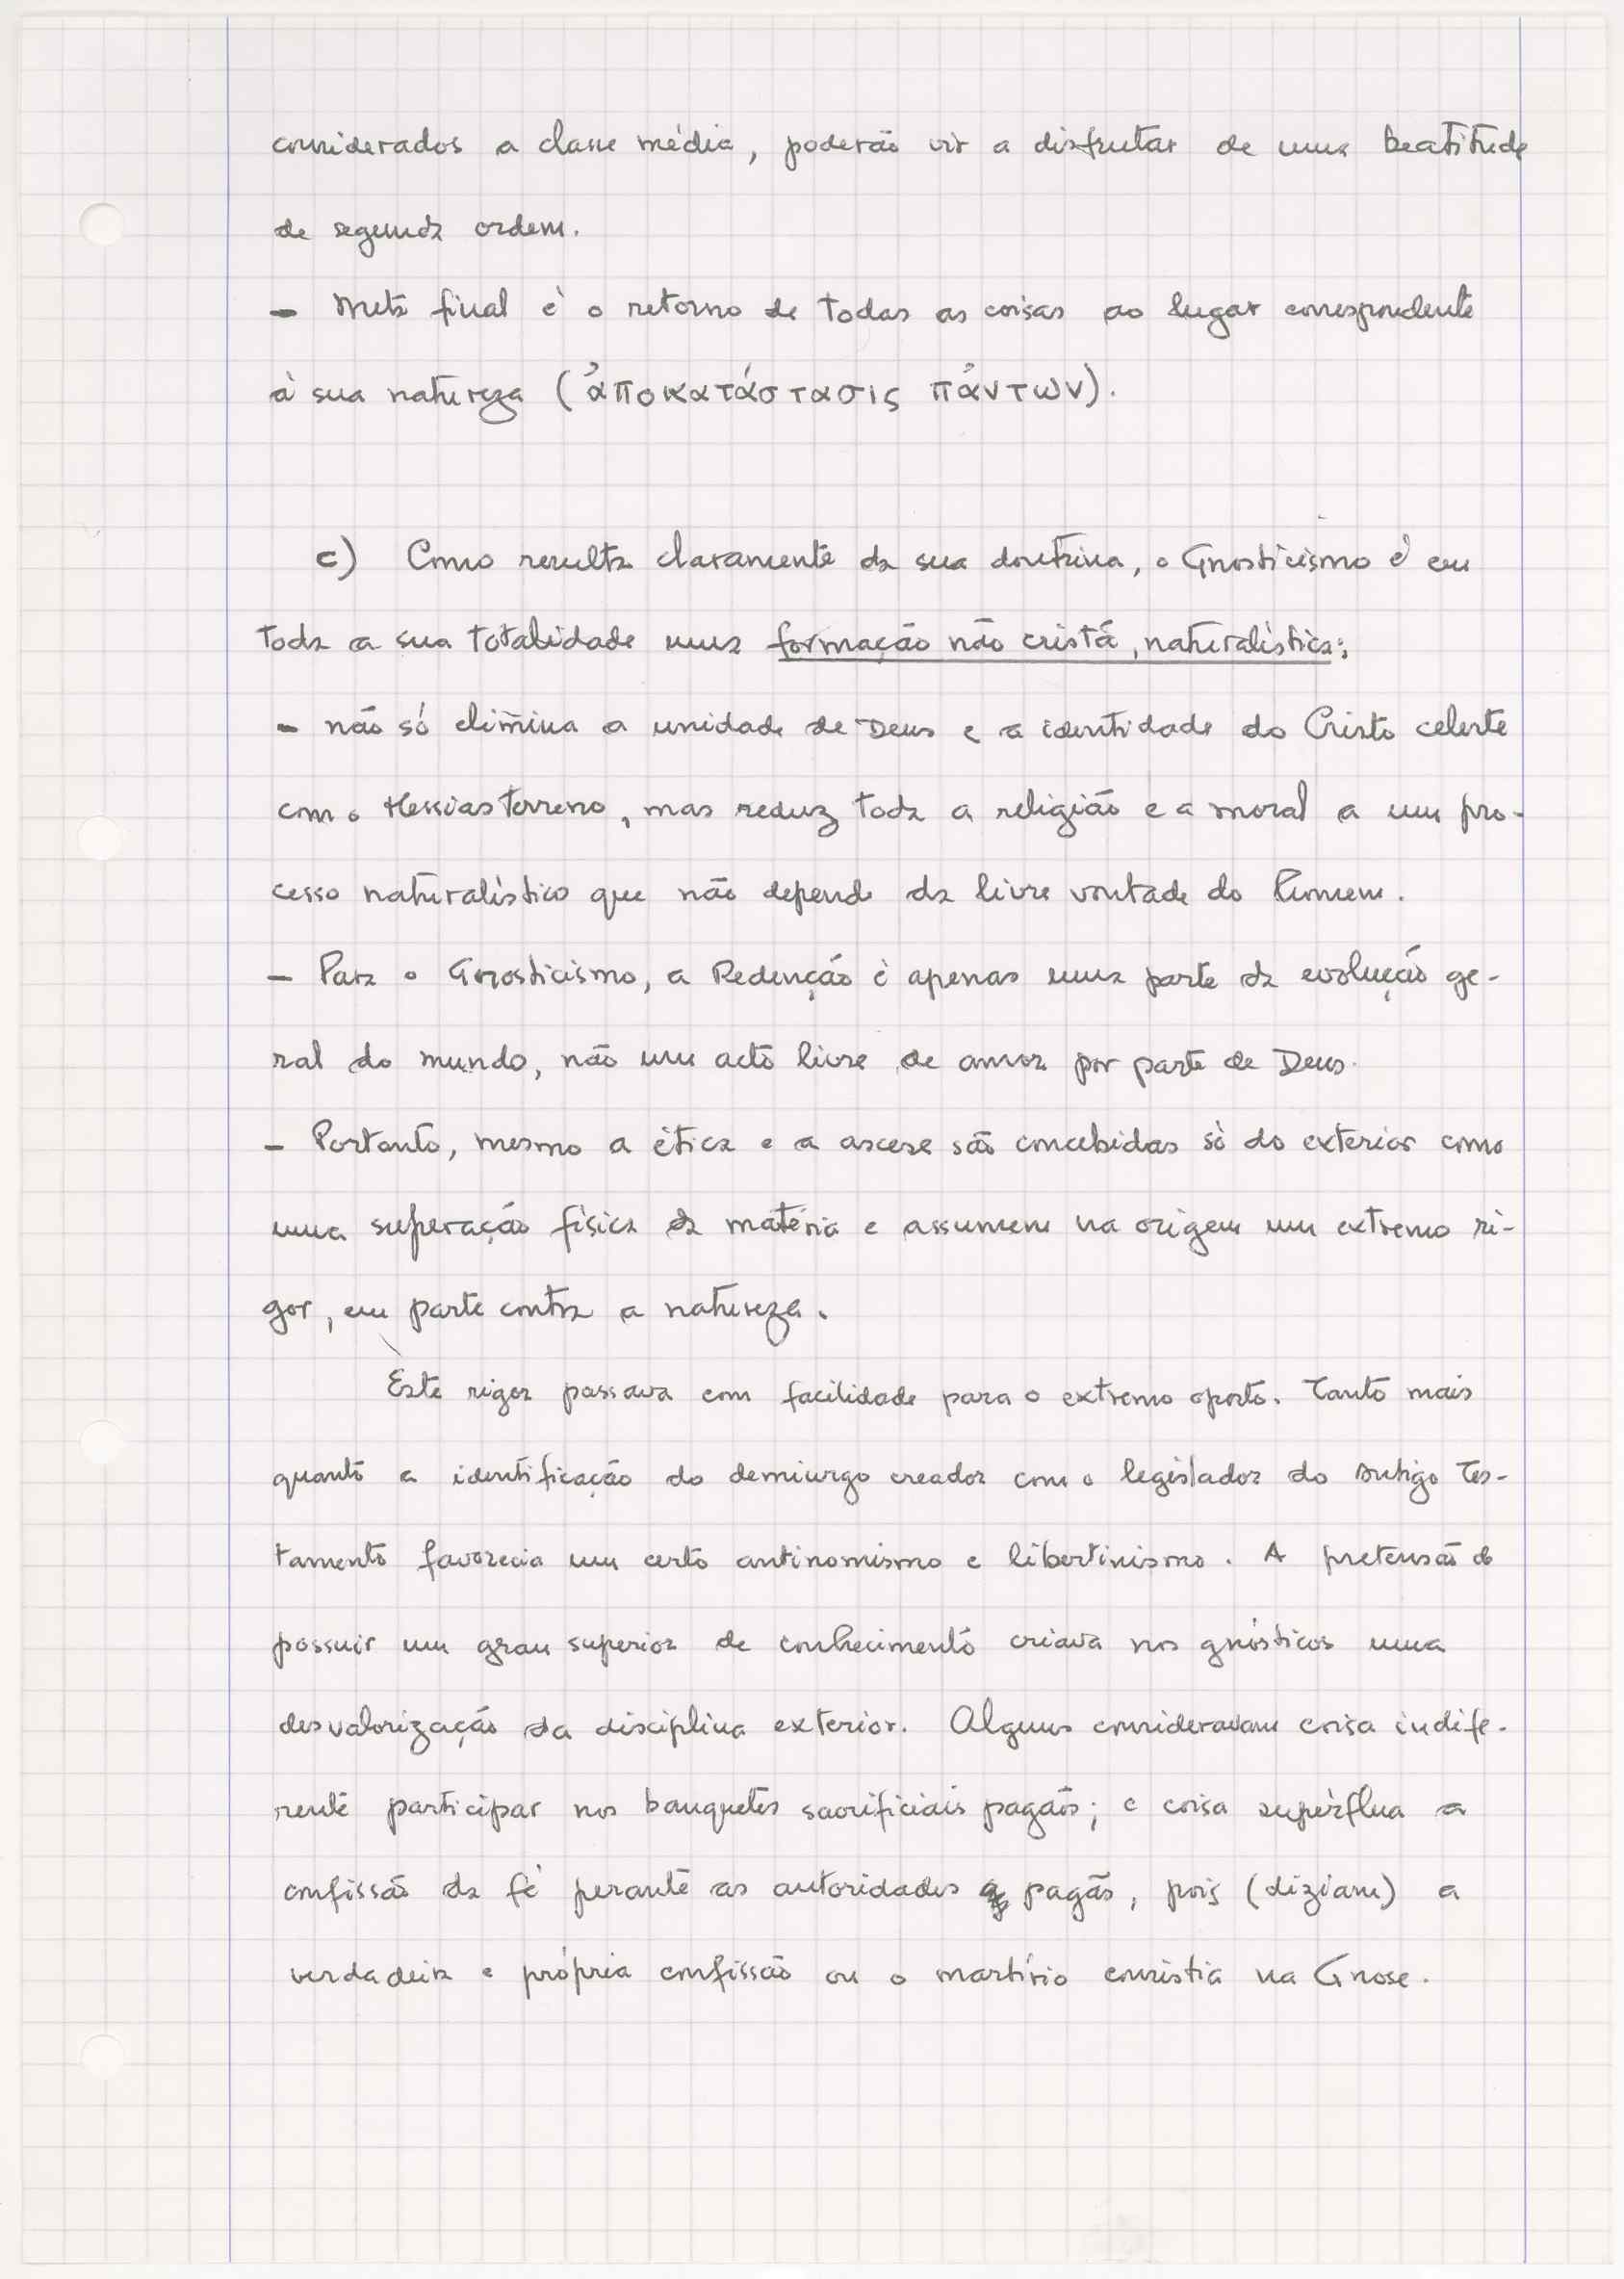 considerados a classe média, poderão vir a disfrutar de uma beatitude
de segunda ordem.
- Meta final é o retorno de todas as coisas ao lugar correspondente
à sua natureza (ἀποκατάστασις πἀντων).
c) Como resulta claramente da sua doutrina, o Gnosticismo é em
toda a sua totalidade uma formação não cristã, naturalística:
- não só elimina a unidade de Deus e a identidade do Cristo celeste
com o Messias terreno, mas reduz toda a religião e a moral a um pro-
cesso naturalístico que não depende da livre vontade do homem.
- Para o Gnosticismo, a Redenção é apenas uma parte da evolução ge-
ral do mundo, não um acto livre de amor por parte de Deus.
- Portanto, mesmo a ética e a ascese são concebidas só do exterior como
uma superação física da matéria e assumem na origem um extremo ri-
gor, em parte contra a natureza.
Este rigor passava com facilidade para o extremo oposto. Tanto mais
quanto a identificação do demiurgo creador com o legislador do Antigo Tes-
tamento favorecia um certo antinomismo e libertinismo. A pretensão de
possuir um grau superior de conhecimento criava nos gnósticos uma
desvalorização da disciplina exterior. Alguns consideravam coisa indife-
rente participar nos banquetes sacrificiais pagãos; e coisa supérflua a
confissão da fé perante as autoridades pagãs, pois (diziam) a
verdadeira e própria confissão ou o martírio consistia na Gnose.